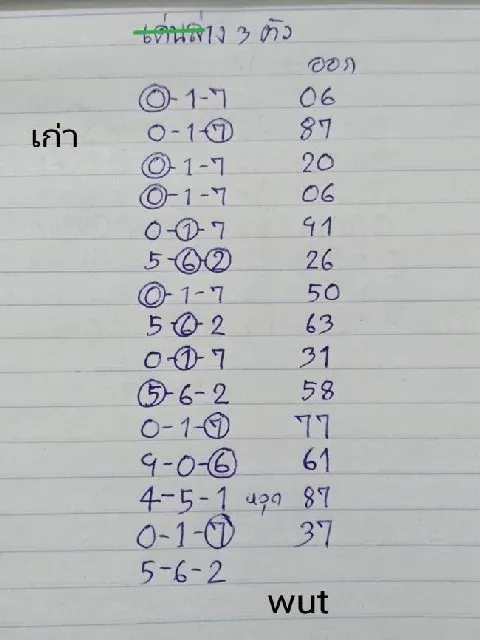 เด่นล่าง 3 ตัว
ออก
0-1-7 06
0-1-7 87
เก่า
0-1-7 20
0-1-7 06
0-1-7 91
5-6-2 26
0-1-7 50
5-6-2 63
0-1-7 31
5-6-2 58
0-1-7 77
9-0-6 61
4-5-1 หลุด 87
0-1-7 37
5-6-2
wut